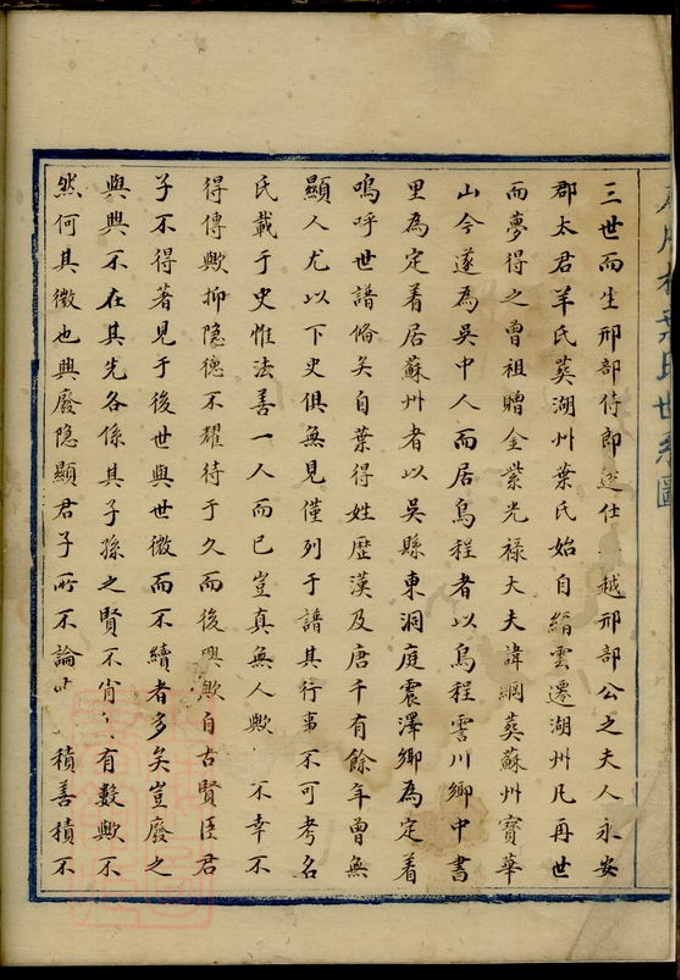 世系圖
三世而生邢部侍郎逵仕越邢部公之夫人永安
郡太君羊氏葬湖州葉氏始自縉雲遷湖州凡再世
而夢得之曾祖贈金紫光祿大夫諱綱葬蘇州寳華
山今遂為吳中人而居烏程者以烏程霅川鄉中書
里為定着居蘇州者以吳縣東洞庭震澤鄉為定着
嗚呼世譜俻矣自葉得姓歴漢及唐千有餘年曾無
顯人尤以下史俱無見僅列于譜其行事不可考名
氏載于史惟法善一人而已豈真無人歟不幸不
得傳歟抑隐德不耀待于久而後興歟自古賢臣君
子不得著見于後世與世微而不續者多矣豈廢之
與興不在其先各係其子孫之賢不肖有數歟不
然何其微也興廢隐顯君子所不論积善積不